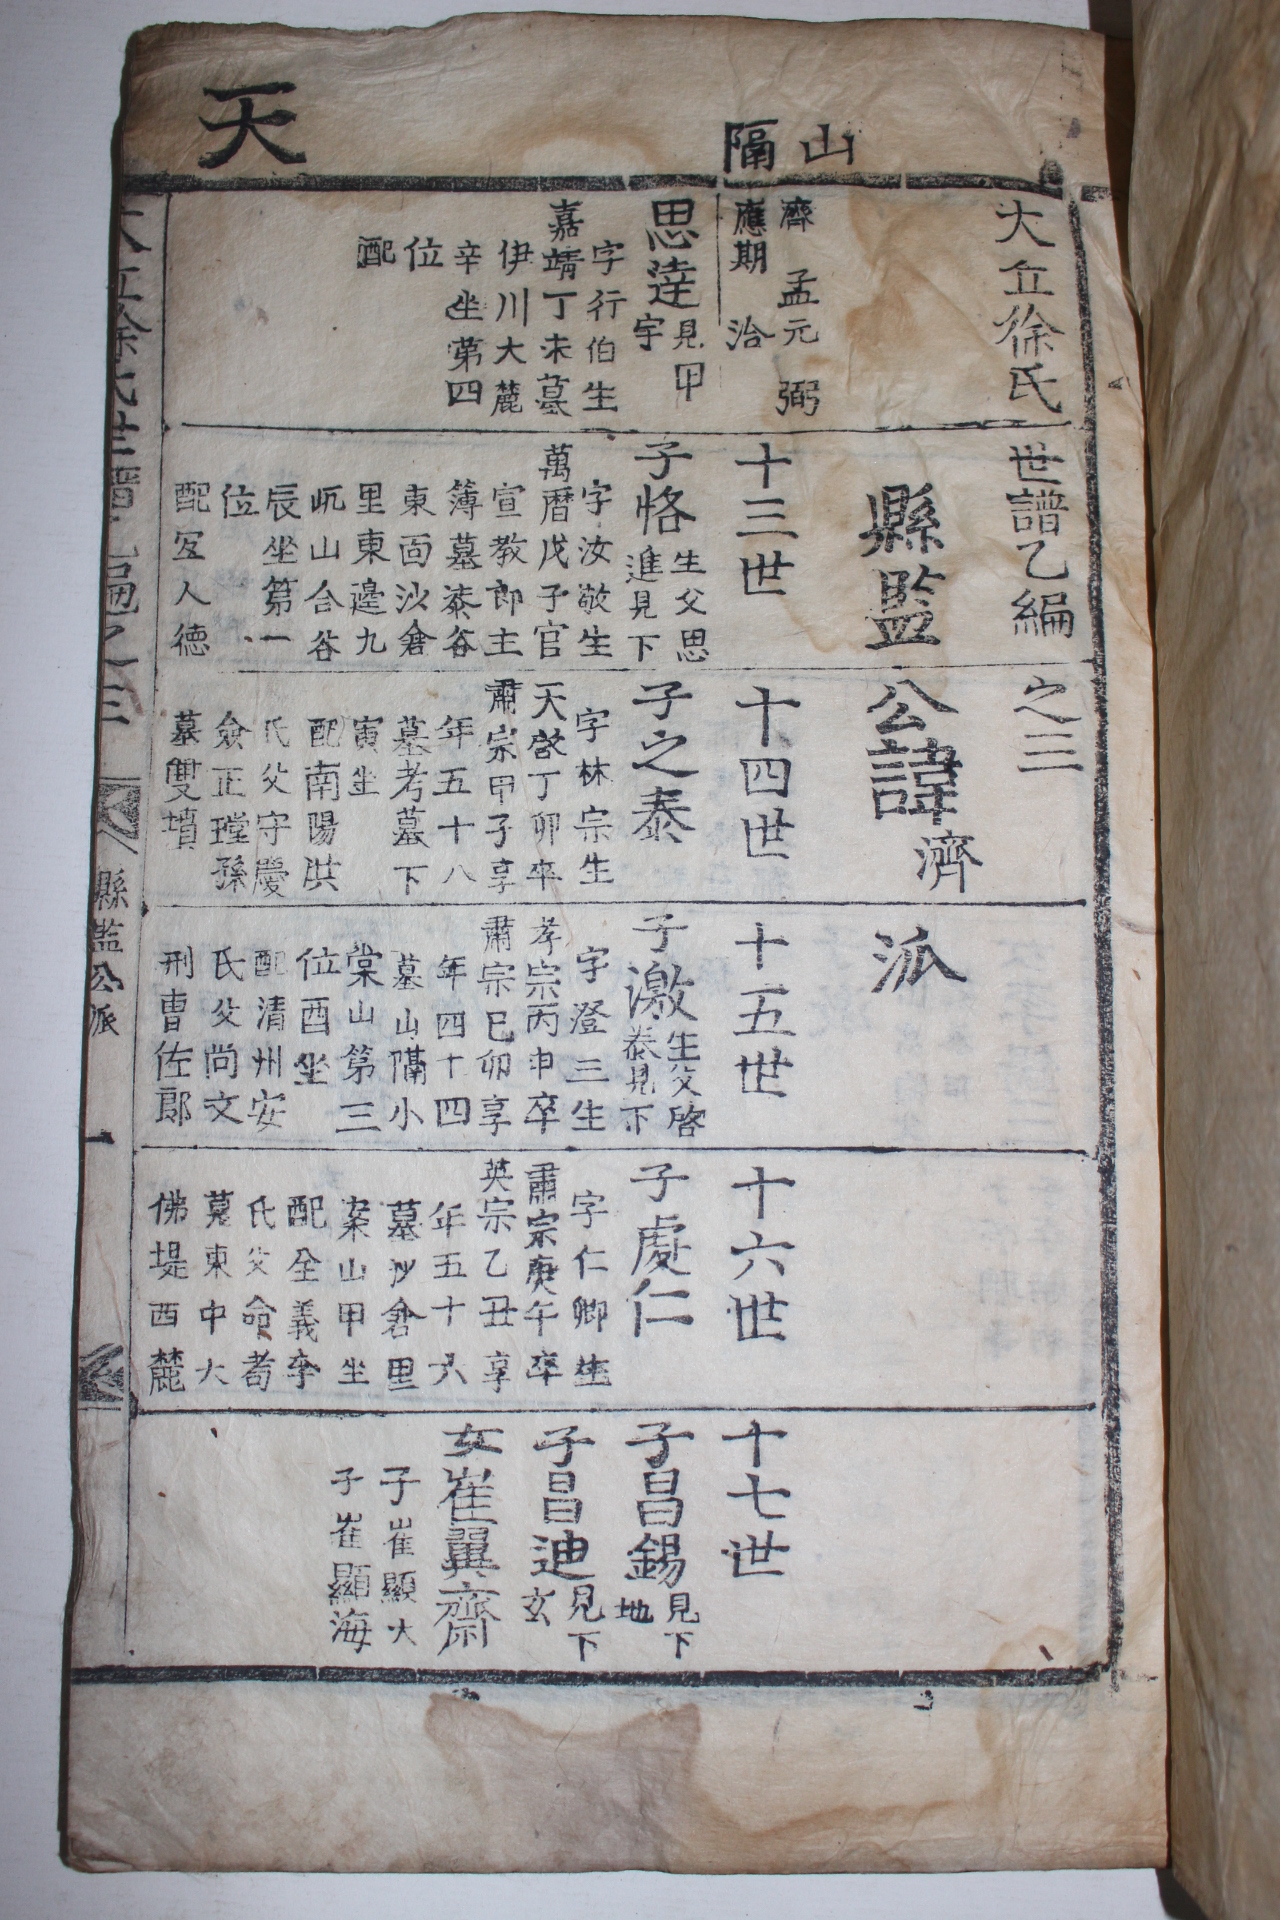 天
山隔
大丘徐氏世譜乙編之三
縣監公諱濟派
濟 孟元 弼
應期 治
思達見甲
字
字行伯生
嘉靖丁未墓
伊川大麓
辛坐第四
位
配
十三世
子恪生父思
進見下
字汝敬生
萬曆戊子官
宣教郎主
簿墓漆谷
東面沙倉
里東邊九
山合谷
辰坐第一
位
配宜人德
十四世
子之泰
字林宗生
天啟丁卯卒
肅宗甲子享
年五十八
墓考墓下
寅坐
配南陽洪
氏父守慶
僉正瑾孫
墓雙墳
十五世
子激生父啓
泰見下
字澄三生
孝宗丙申卒
肅宗己卯享
年四十四
墓山隔小
棠山第三
位酉坐
配清州安
氏父尚文
刑曹佐郎
十六世
子處仁
字仁卿生
肅宗庚午卒
英宗乙丑享
年五十六
墓沙倉里
案山甲坐
配全義李
氏父命耉
墓東中大
佛堤西麓
十七世
子昌錫見下
地
子昌迪見下
玄
女崔翼齋
子崔顯大
子崔顯海
大丘徐氏世譜乙編之三
縣監公派
一